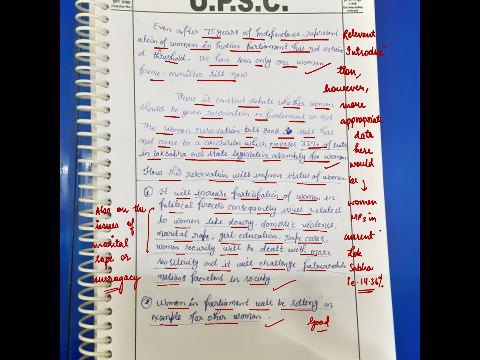 U.P.S.C.
Even after 75 years of Independence represent
ation of women in Indian parliament has not achieve
d threshold. We have seen only one women
prime-minister till now
There is constant debate whether women
should be given reservation in parliament or not
The women reservation bill 2008 still has
not came to a conclusion which proposes 33% of seats
in lok sabha and state legislative assembly for women
How this reservation will improve status of women
① It will increase participation of women in
political process consequently issues related
to women like dowry, domestic violence,
marital rape, girl education, rape cases,
women security will be dealt with more
sensitivity and it will challenge patriarchal
notions prevalent in society
② Women in parliament will be setting an
example for other woman.
Good
Relevant
Introduc
tion,
however,
more
appropriate
data
here
would
be →
women
MPs in
current
Lok
Sabha
i.e. 14.36%
Also on the
issues of
marital
rape or
surrogacy